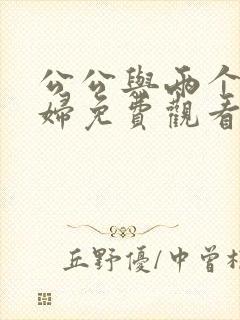 公公與兩个
婦免費觀看
丘野優/中曾根